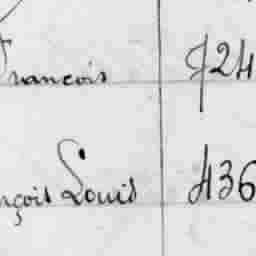 François 724
nçois Louis 436